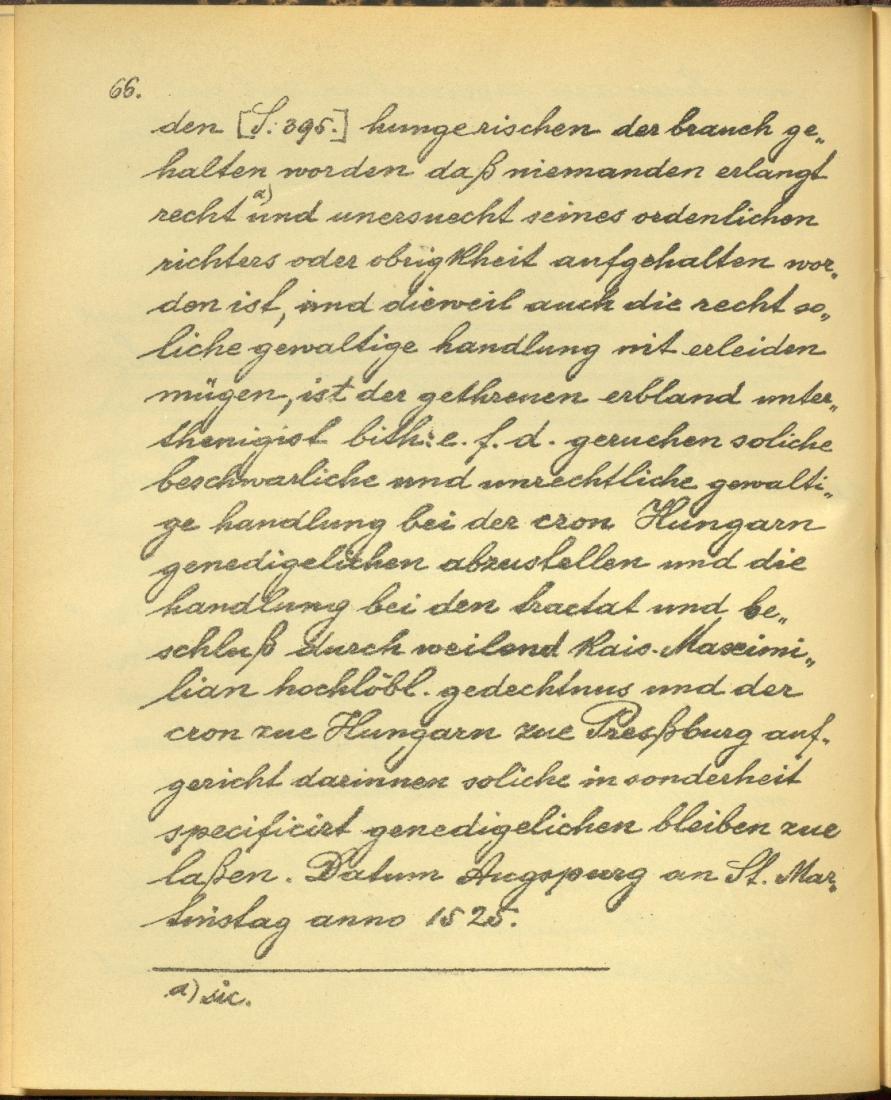 66.
den [S. 395.] hungerischen der brauch ge„
halten worden daß niemanden erlangt
recht a) und unersuecht seines ordenlichen
richters oder obrigkheit aufgehalten wor„
den ist, und dieweil auch die recht so„
liche gewaltige handlung nit erleiden
mügen, ist der gethreuen erbland unter„
thenigist bith: e. f. d. geruehen soliche
beschwarliche und unrechtliche gewalti„
ge handlung bei der cron Hungarn
genedigelichen abzustellen und die
handlung bei den tractat und be„
schluß durch weilend kais. Maximi„
lian hochlöbl. gedechtnus und der
cron zue Hungarn zue Preßburg auf„
gericht darinnen soliche in sonderheit
specificirt genedigelichen bleiben zue
laßen. Datum Augspurg an St. Mar„
tinstag anno 1525.
a) sic.